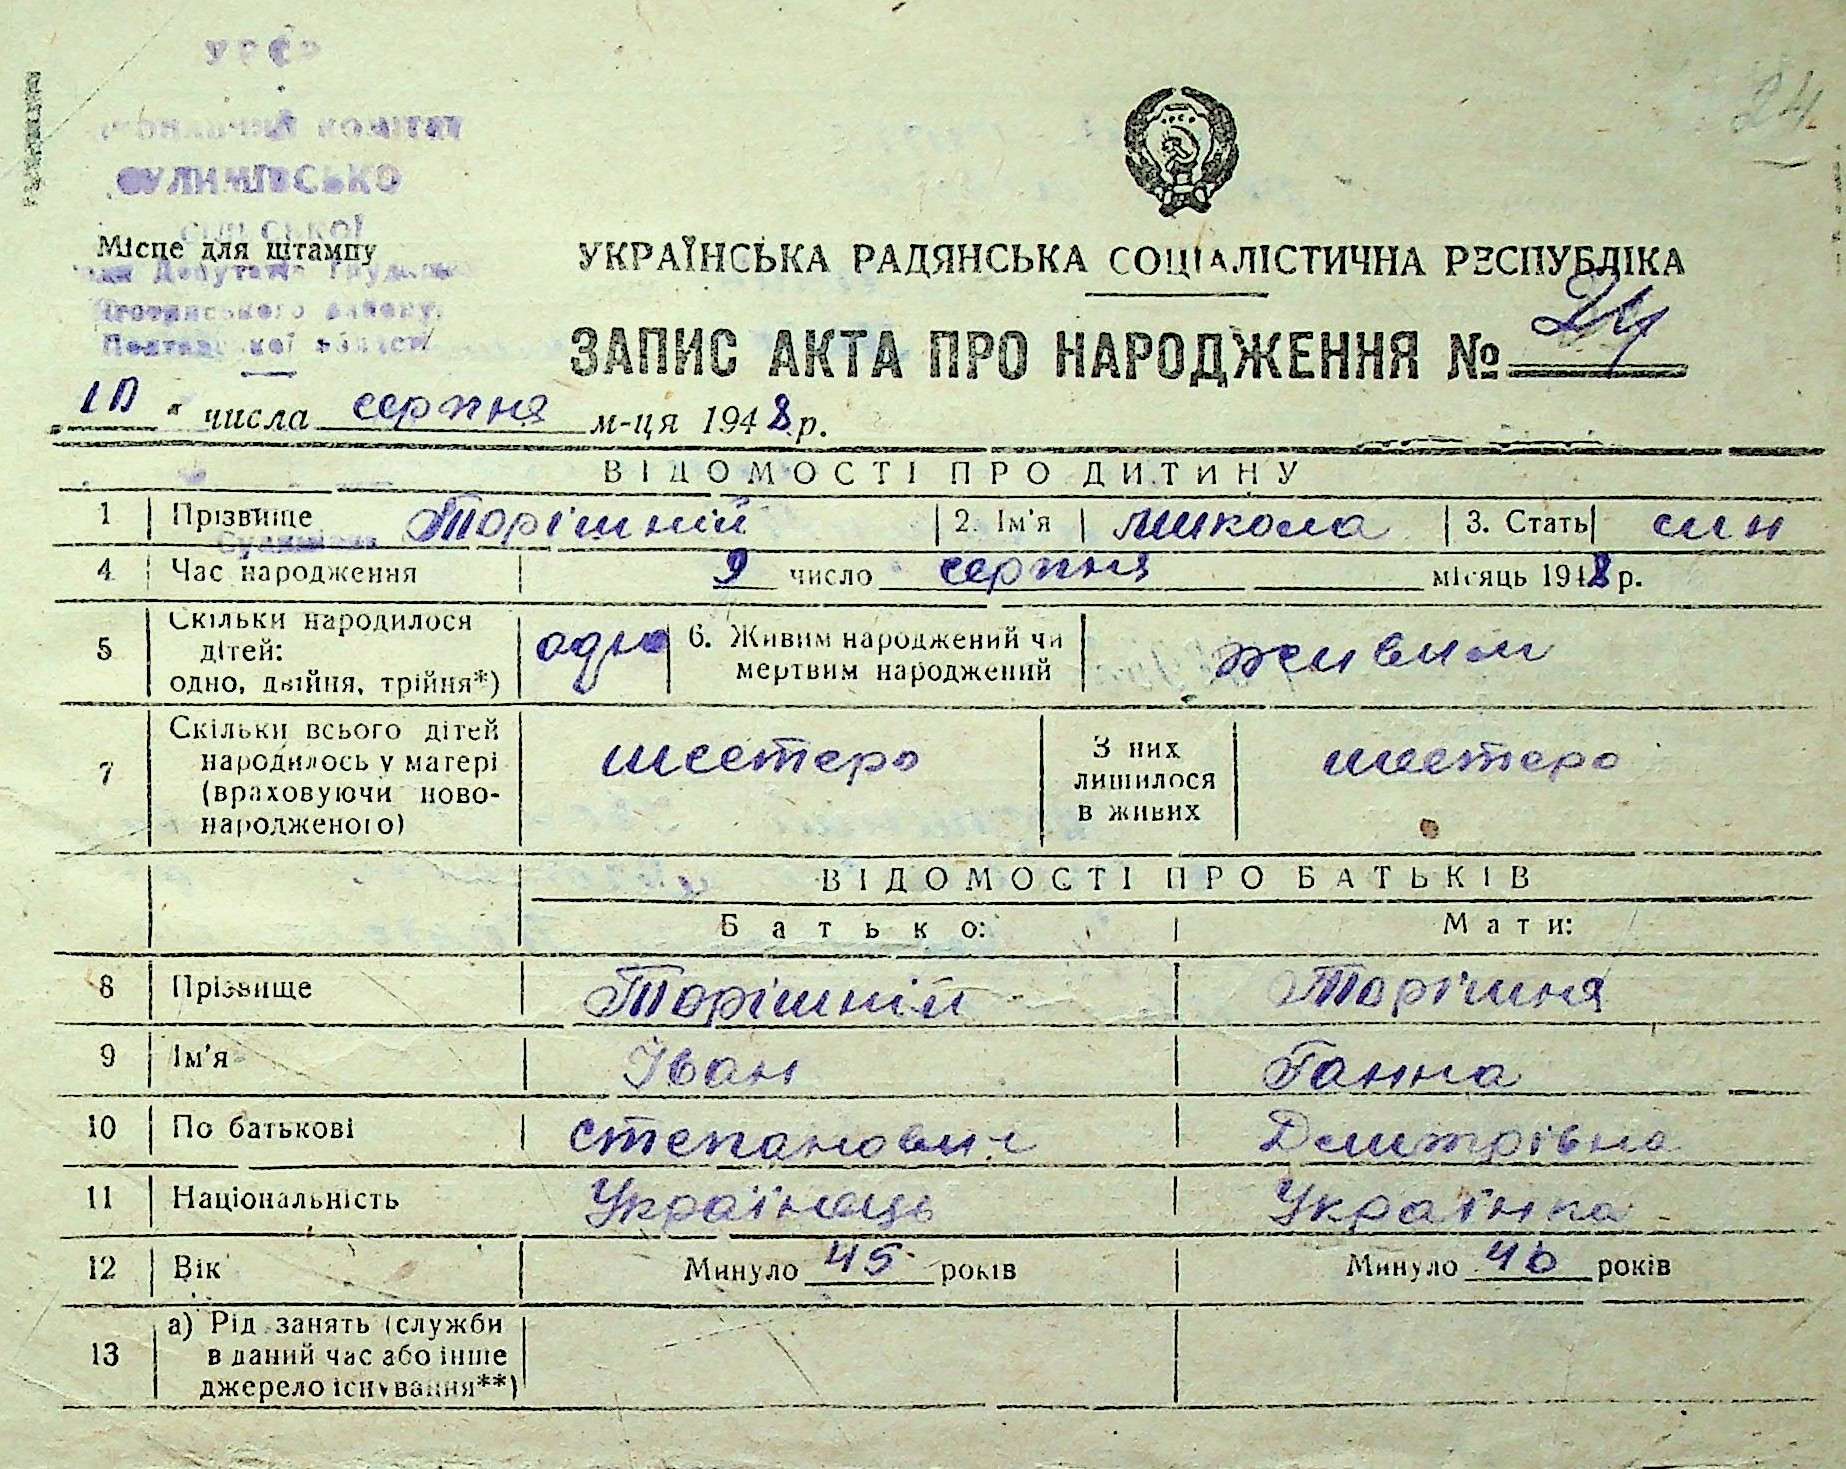 УРСР
КОМІТЕТ
СУЛИМІВСЬКО
СІЛЬСЬКОЇ
Місце для штампу
24
УКРАЇНСЬКА РАДЯНСЬКА СОЦІАЛІСТИЧНА РЕСПУБЛІКА
ЗАПИС АКТА ПРО НАРОДЖЕННЯ № 24
„10“ числа серпня м-ця 1948 р.
ВІДОМОСТІ ПРО ДИТИНУ
1 Прізвище Торішній 2. Ім'я Микола 3. Стать син
4 Час народження 9 число серпня місяць 1948 р.
5 Скільки народилося дітей: одно, двійня, трійня*) одно 6. Живим народжений чи мертвим народжений живим
7 Скільки всього дітей народилось у матері (враховуючи новонародженого) шестеро З них лишилося в живих шестеро
ВІДОМОСТІ ПРО БАТЬКІВ
Батько: Мати:
8 Прізвище Торішній Торішня
9 Ім'я Іван Ганна
10 По батькові Степанович Дмитрівна
11 Національність Українець Українка
12 Вік Минуло 45 років Минуло 40 років
13 а) Рід занять (служби в даний час або інше джерело існування**)